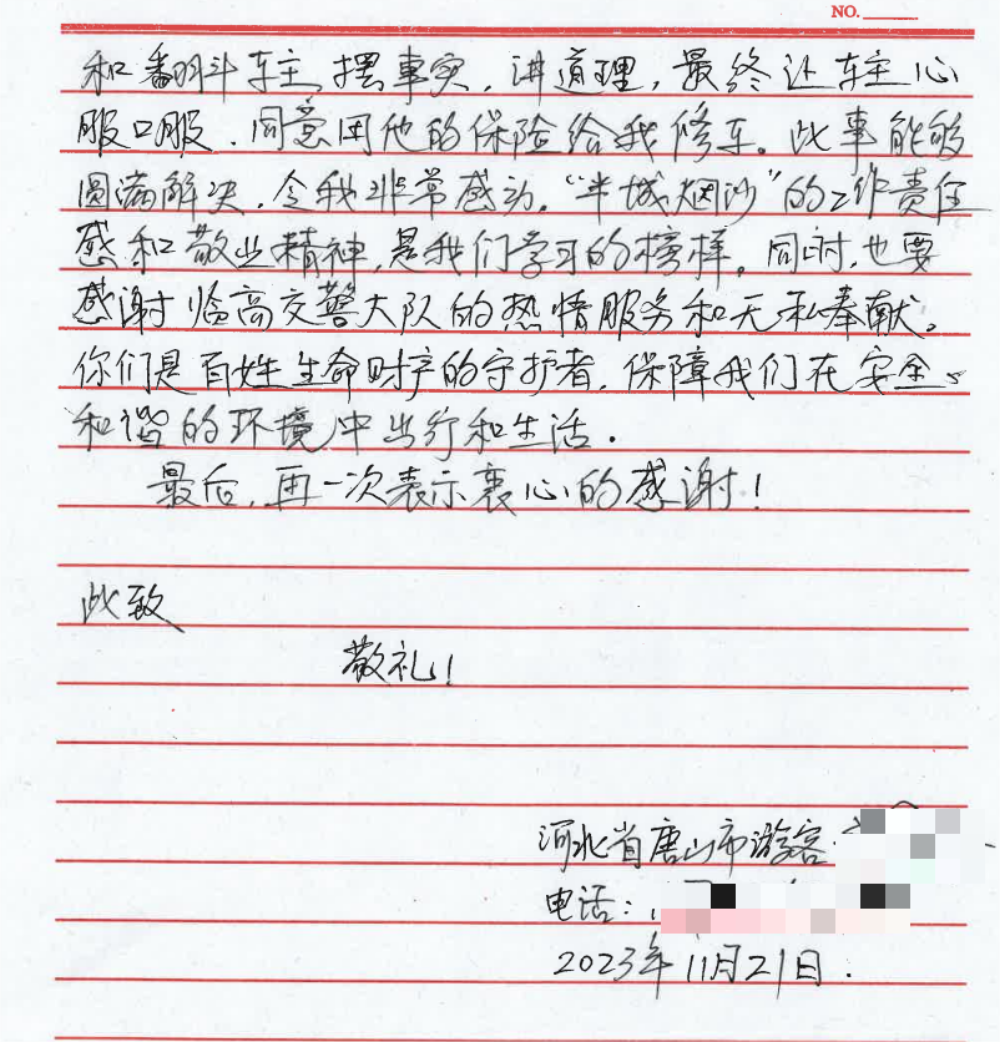 NO.
和翻斗车主摆事实，讲道理，最终让车主心
服口服．同意用他的保险给我修车。此事能够
圆满解决．令我非常感动．“半城烟沙”的工作责任
感和敬业精神，是我们学习的榜样。同时，也要
感谢临高交警大队的热情服务和无私奉献。
你们是百姓生命财产的守护者，保障我们在安全、
和谐的环境中出行和生活．
最后，再一次表示衷心的感谢！
此致
敬礼！
河北省唐山市游客
电话：
2023年11月21日．